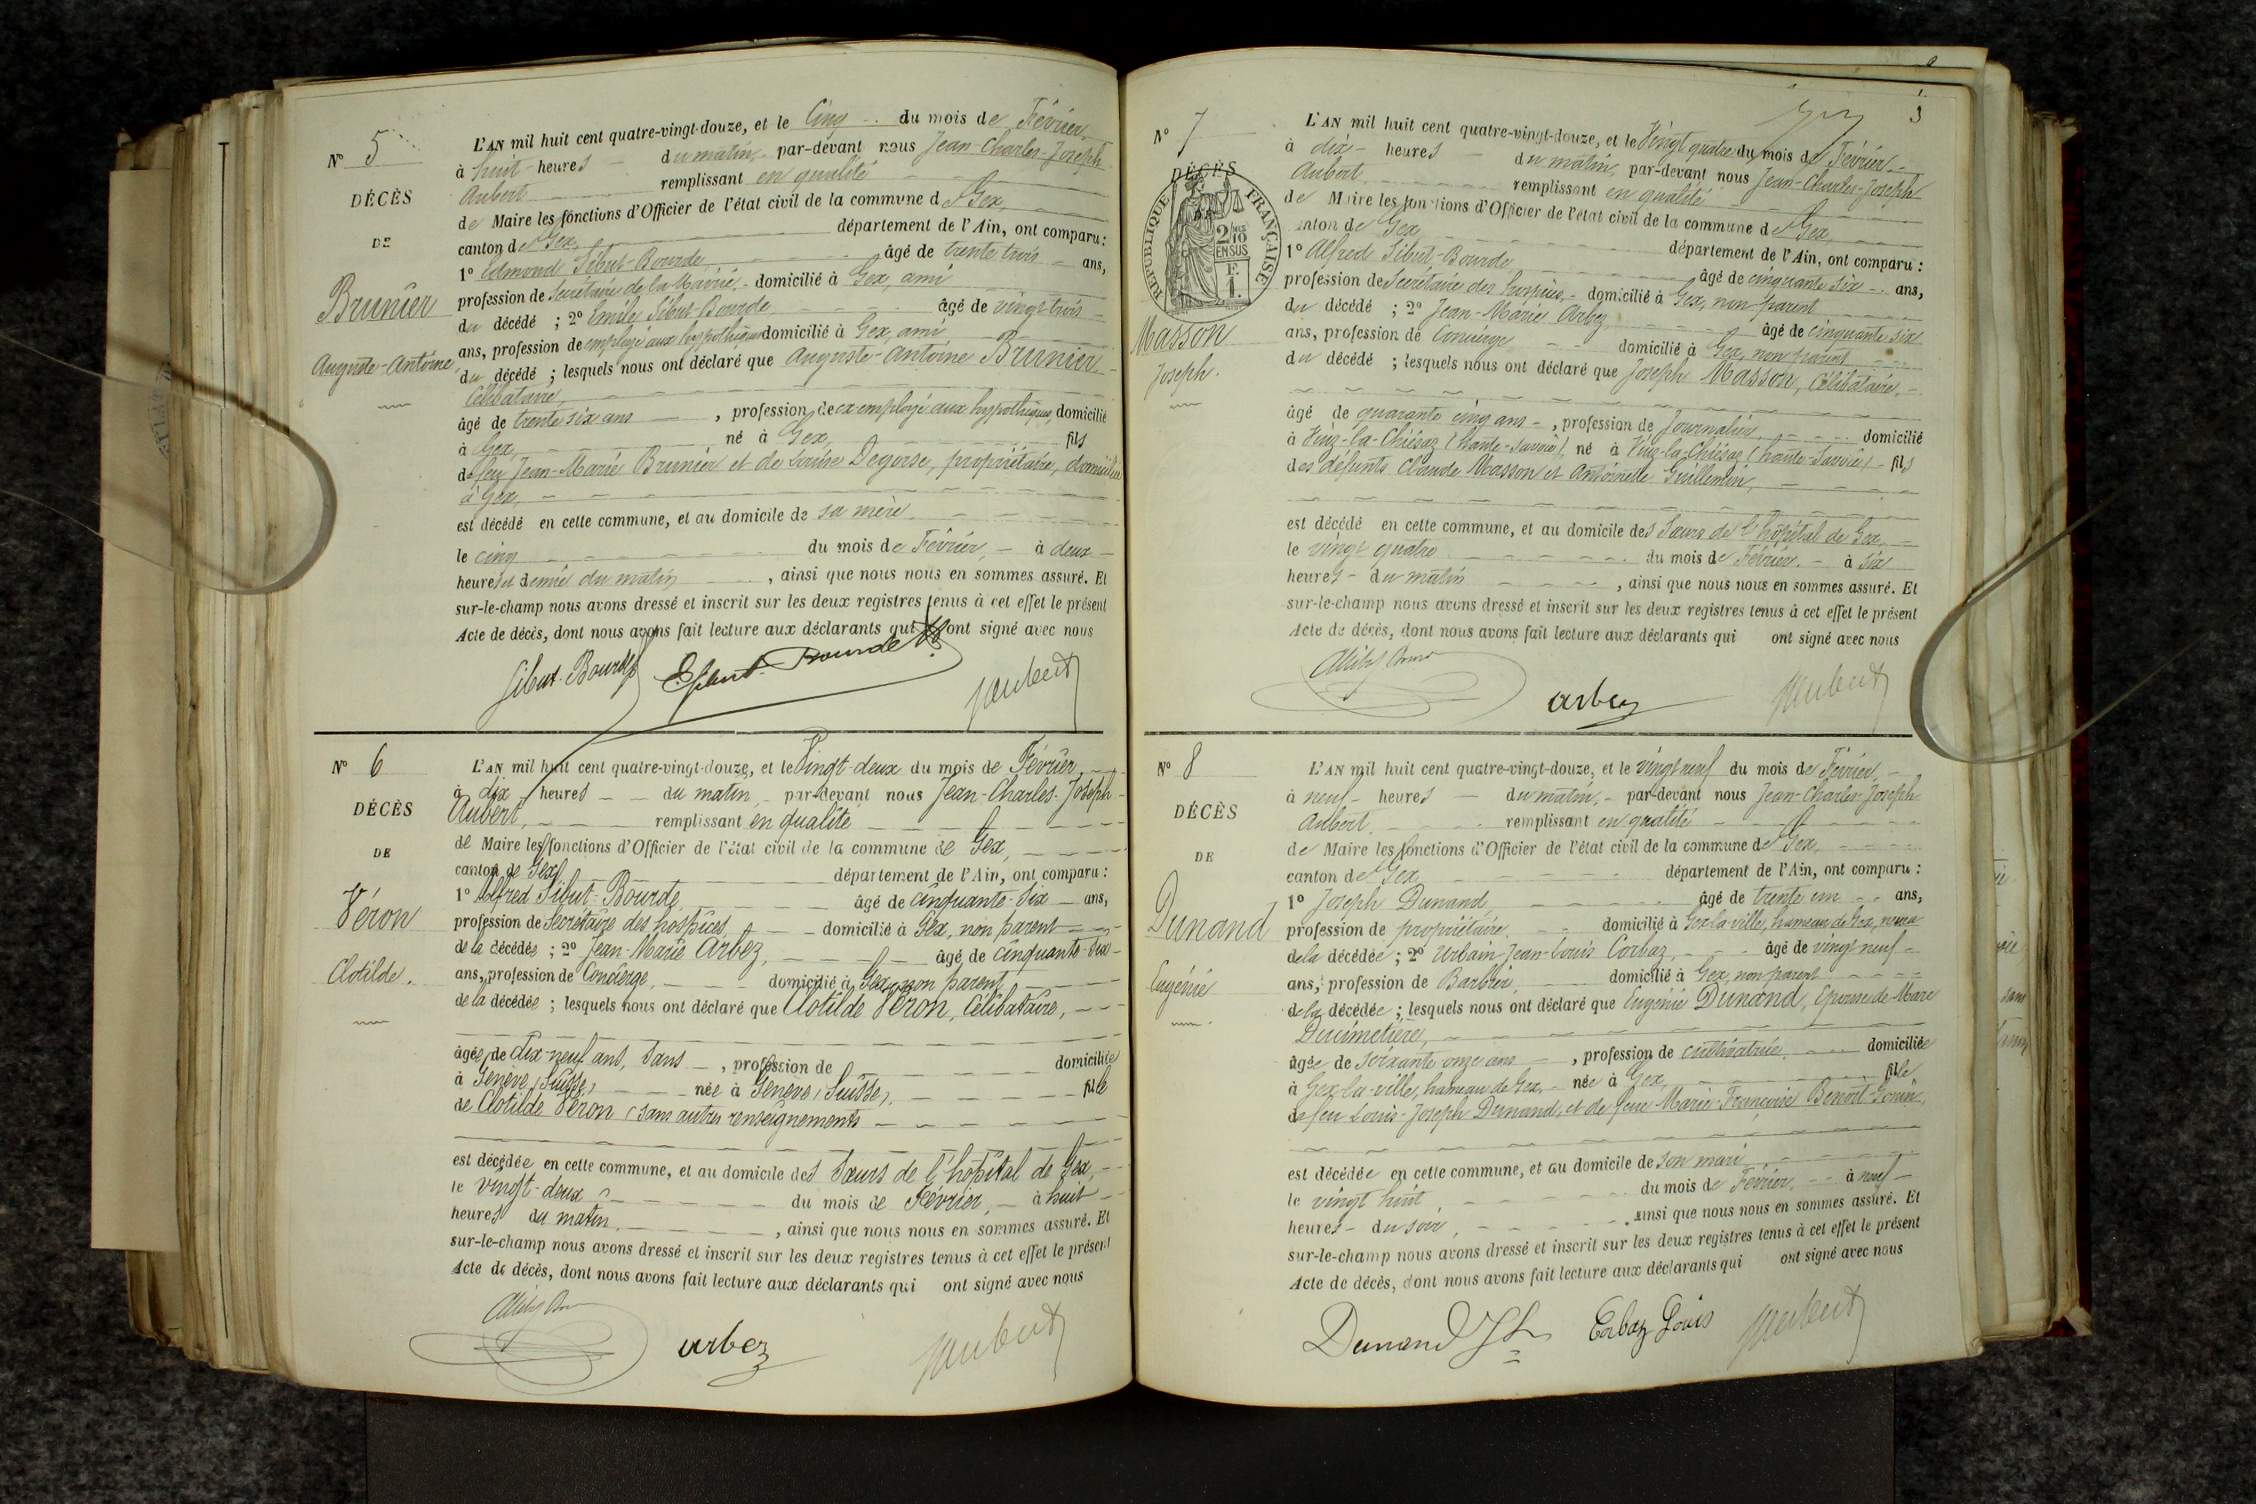 N° 5
DÉCÈS
DE
Brunier
Auguste-Antoine,
L'AN mil huit cent quatre-vingt-douze, et le Cinq du mois de Février
à huit heures du matin, par-devant nous Jean-Charles-Joseph
Aubert remplissant en qualité
de Maire les fonctions d'Officier de l'état civil de la commune de Gex,
canton de Gex, département de l'Ain, ont comparu :
1° Edmond Sibut-Bourde âgé de trente trois ans,
profession de Secrétaire de la Mairie, domicilié à Gex, ami
du décédé ; 2° Emile Sibut-Bourde âgé de vingt-trois
ans, profession de employé aux hypothèques domicilié à Gex, ami
du décédé ; lesquels nous ont déclaré que Auguste-Antoine Brunier
Célibataire,
âgé de trente six ans , profession de ex-employé aux hypothèques, domicilié
à Gex, né à Gex, fils
de feu Jean-Marie Brunier et de Louise Degorse, propriétaire, domiciliée
à Gex,
est décédé en cette commune, et au domicile de sa mère
le cinq du mois de Février, à deux
heures et demie du matin , ainsi que nous nous en sommes assuré. Et
sur-le-champ nous avons dressé et inscrit sur les deux registres tenus à cet effet le présent
Acte de décès, dont nous avons fait lecture aux déclarants qui ont signé avec nous
Sibut-Bourde E Sibut-Bourde JAubert
N° 6
DÉCÈS
DE
Véron
Clotilde.
L'AN mil huit cent quatre-vingt-douze, et le Vingt-deux du mois de Février,
à dix heures du matin, par-devant nous Jean-Charles-Joseph
Aubert, remplissant en qualité
de Maire les fonctions d'Officier de l'état civil de la commune de Gex,
canton de Gex, département de l'Ain, ont comparu :
1° Alfred Sibut-Bourde, âgé de Cinquante-Six ans,
profession de Secrétaire des hospices, domicilié à Gex, non parent
de la décédée ; 2° Jean-Marie Arbez, âgé de Cinquante-Six
ans, profession de Concierge, domicilié à Gex, non parent
de la décédée ; lesquels nous ont déclaré que Clotilde Véron, Célibataire,
âgée de dix-neuf ans, sans , profession de domiciliée
à Genève (Suisse) née à Genève (Suisse), fille
de Clotilde Véron (sans autres renseignements
est décédée en cette commune, et au domicile des Sœurs de l'hôpital de Gex,
le vingt-deux du mois de Février, à huit
heures du matin. , ainsi que nous nous en sommes assuré. Et
sur-le-champ nous avons dressé et inscrit sur les deux registres tenus à cet effet le présent
Acte de décès, dont nous avons fait lecture aux déclarants qui ont signé avec nous
Arbez JAubert
3
N° 7
DÉCÈS
RÉPUBLIQUE FRANÇAISE
2/10 EN SUS
F. 1.
Masson
Joseph.
L'AN mil huit cent quatre-vingt-douze, et le Vingt quatre du mois de Février
à dix heures du matin, par-devant nous Jean-Charles-Joseph
Aubert remplissant en qualité
de Maire les fonctions d'Officier de l'état civil de la commune de Gex,
canton de Gex, département de l'Ain, ont comparu :
1° Alfred Sibut-Bourde âgé de cinquante six ans,
profession de Secrétaire des hospices, domicilié à Gex, non parent
du décédé ; 2° Jean-Marie Arbez âgé de cinquante six
ans, profession de Concierge domicilié à Gex, non parent
du décédé ; lesquels nous ont déclaré que Joseph Masson, Célibataire,
âgé de quarante cinq ans , profession de Journalier, domicilié
à Véïz-la-Chiésaz (haute-Savoie), né à Véïz-la-Chiésaz (haute-Savoie) fils
des défunts Claude Masson et Antoinette Guillemin,
est décédé en cette commune, et au domicile des Sœurs de l'hôpital de Gex,
le vingt quatre du mois de Février. à six
heures du matin , ainsi que nous nous en sommes assuré. Et
sur-le-champ nous avons dressé et inscrit sur les deux registres tenus à cet effet le présent
Acte de décès, dont nous avons fait lecture aux déclarants qui ont signé avec nous
Arbez JAubert
N° 8
DÉCÈS
DE
Dunand
Eugénie
L'AN mil huit cent quatre-vingt-douze, et le vingt neuf du mois de Février,
à neuf heures du matin, par-devant nous Jean-Charles-Joseph
Aubert remplissant en qualité
de Maire les fonctions d'Officier de l'état civil de la commune de Gex,
canton de Gex, département de l'Ain, ont comparu :
1° Joseph Dunand, âgé de trente un ans,
profession de propriétaire, domicilié à Gex-la-ville, hameau de Gex, neveu
de la décédée ; 2° Urbain-Jean-Louis Corbaz, âgé de vingt neuf
ans, profession de Barbier, domicilié à Gex, non parent
de la décédée ; lesquels nous ont déclaré que Eugénie Dunand, Epouse de Marc
Duimetière,
âgée de soixante onze ans , profession de cultivatrice, domiciliée
à Gex-la-ville, hameau de Gex, née à Gex, fille
de feu Louis-Joseph Dunand, et de feue Marie-Françoise Benoit-Gonin,
est décédée en cette commune, et au domicile de son mari
le vingt huit du mois de Février, à neuf
heures du soir, ainsi que nous nous en sommes assuré. Et
sur-le-champ nous avons dressé et inscrit sur les deux registres tenus à cet effet le présent
Acte de décès, dont nous avons fait lecture aux déclarants qui ont signé avec nous
Dunand Jh Corbaz Louis JAubert